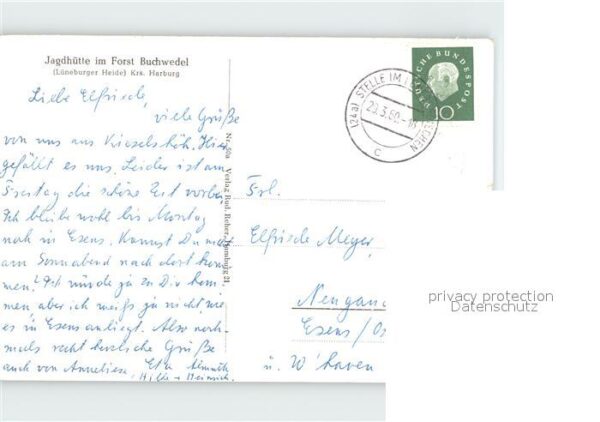 Jagdhütte im Forst Buchwedel
(Lüneburger Heide) Krs. Harburg
Liebe Elfriede,
viele Grüße
von uns aus Hier
gefällt es uns. Leider ist am
Freitag die schöne Zeit vorbei.
Ich bleibe wohl bis Montag
noch in Esens. Kannst Du nicht
am Sonnabend nach dort kom
men? Ich würde ja zu Dir kom
men aber ich weiß ja nicht, wie
es in Esens anliegt. Also noch-
mals recht herzliche Grüße
auch von Anneliese,
Hilde + Heinrich.
Verlag Rud. Reher, Hamburg 21
(24a) STELLE IM
29.3.60-16
c
DEUTSCHE BUNDESPOST
10
Frl.
Elfriede Meyer,
Esens/
u. W'haven
privacy protection
Datenschutz